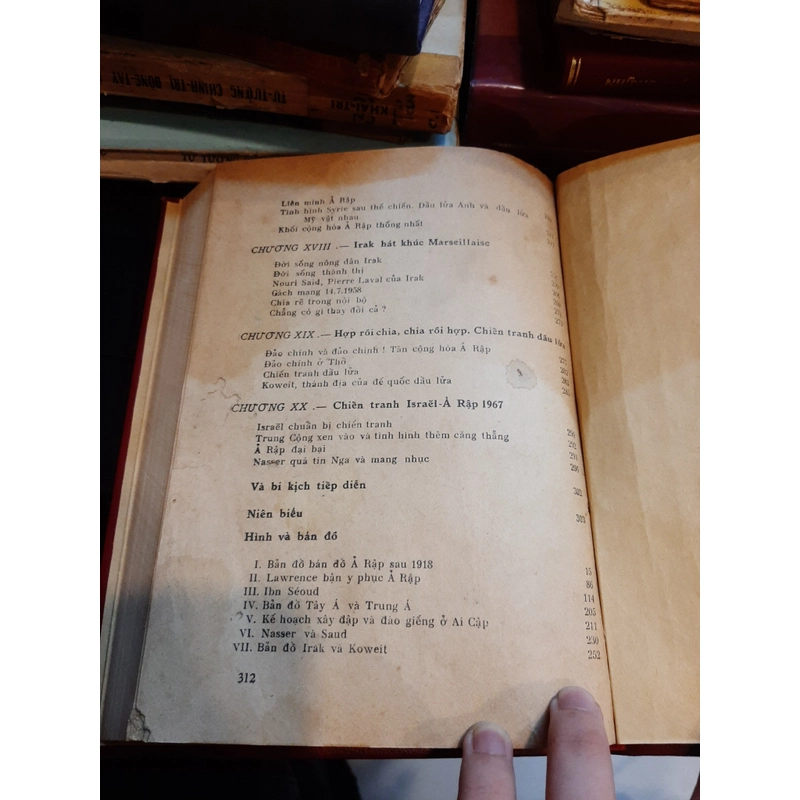 TƯ-TƯỞNG CHÍNH-TRỊ ĐÔNG-TÂY
KHAI-TRI
Liên minh Ả Rập
Tình hình Syrie sau thế chiến. Dầu lửa Anh và dầu lửa
Mỹ vật nhau
Khối cộng hòa Ả Rập thống nhất
CHƯƠNG XVIII .— Irak hát khúc Marseillaise
Đời sống nông dân Irak
Đời sống thành thị
Nouri Said, Pierre Laval của Irak
Cách mạng 14.7.1958
Chia rẽ trong nội bộ
Chẳng có gì thay đổi cả ?
CHƯƠNG XIX .— Hợp rồi chia, chia rồi hợp. Chiến tranh dầu lửa
Đảo chính và đảo chính ! Tân cộng hòa Ả Rập 277
Đảo chính ở Thổ 282
Chiến tranh dầu lửa 282
Koweit, thánh địa của đế quốc dầu lửa 285
CHƯƠNG XX .— Chiến tranh Israël-Ả Rập 1967
Israël chuẩn bị chiến tranh 291
Trung Cộng xen vào và tình hình thêm căng thẳng 292
Ả Rập đại bại 294
Nasser quá tin Nga và mang nhục
Và bi kịch tiếp diễn
Niên biểu
Hình và bản đồ
I. Bản đồ bán đảo Ả Rập sau 1918 15
II. Lawrence bận y phục Ả Rập 86
III. Ibn Séoud 114
IV. Bản đồ Tây Á và Trung Á 205
V. Kế hoạch xây đập và đào giếng ở Ai Cập 211
VI. Nasser và Saud 230
VII. Bản đồ Irak và Koweit 252
312